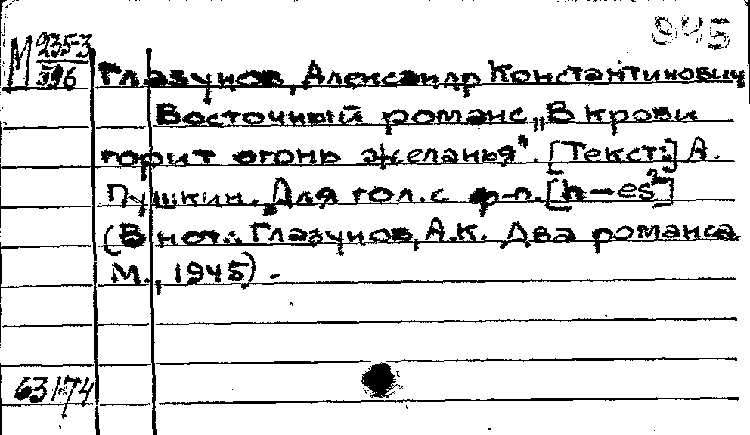 945
М 235-3
396
Глазунов, Александр Константинович
Восточный романс „В крови
горит огонь желанья". [Текст:] А.
Пушкин. Для гол. с ф-п. [h-es²]
(В нот.: Глазунов, А.К. Два романса
М., 1945).
63 174